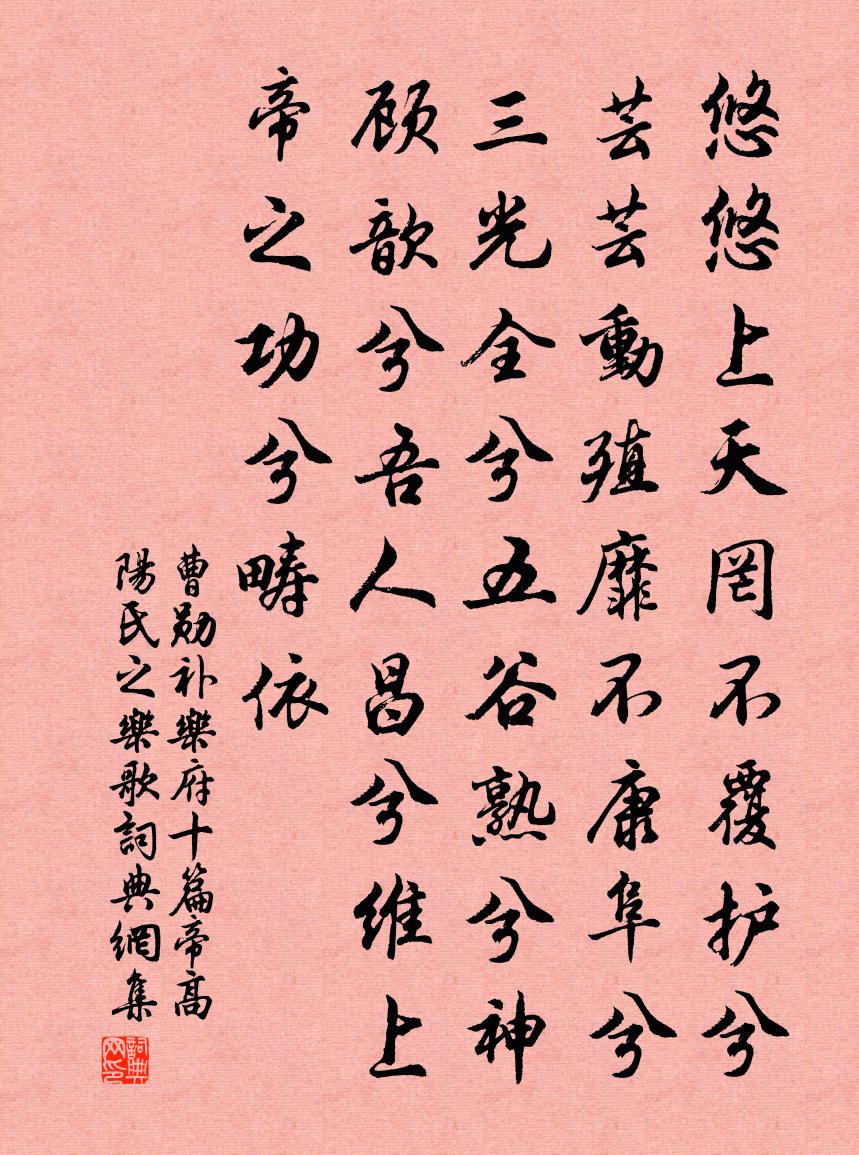 悠悠上天罔不覆护兮
芸芸動殖靡不康阜兮
三光全兮五谷熟兮神
顾歆兮吾人昌兮维上
帝之功兮畴依
曹勋补樂府十篇帝高
陽氏之樂歌詞典網集
詞典
网印